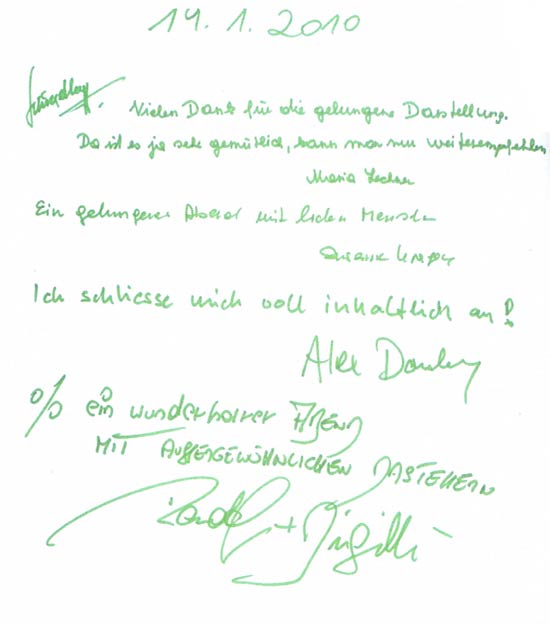 14. 1. 2010
Vielen Dank für die gelungene Darstellung.
Da ist es ja sehr gemütlich, kann man nur weiterempfehlen
Maria
Ein gelungener Abend mit lieben Menschen
Ich schliesse mich voll inhaltlich an!
Alex
% ein wunderbarer ABEND
MIT AUSSERGEWÖHNLICHEN DASTELLERN
+ Birgitt